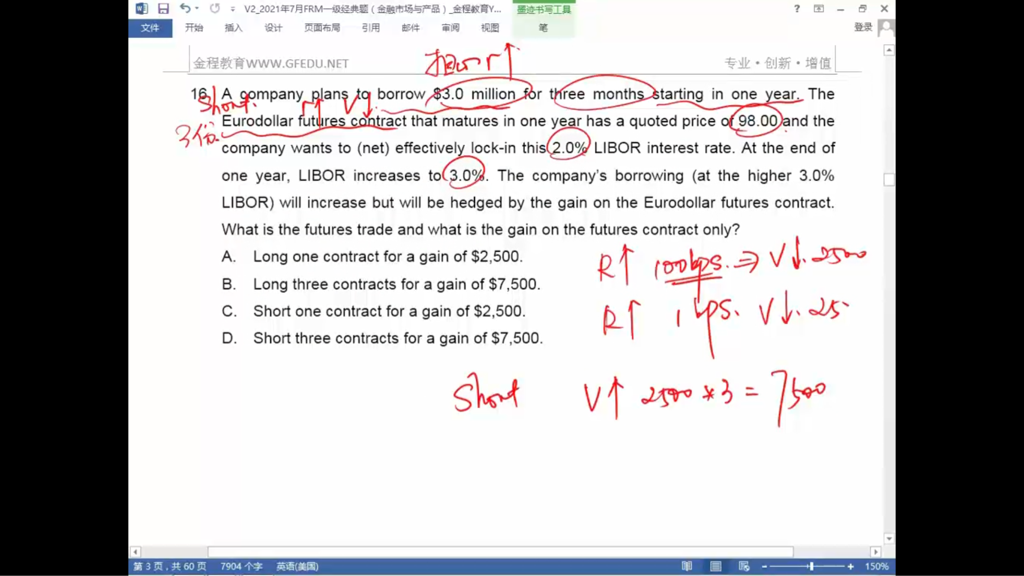 V2_2021年7月FRM一级经典题（金融市场与产品）_金程教育Y...
墨迹书写工具
文件 开始 插入 设计 页面布局 引用 邮件 审阅 视图 笔 登录
金程教育WWW.GFEDU.NET 专业·创新·增值
担心r↑
16. A company plans to borrow $3.0 million for three months starting in one year. The
Short. r↑ V↓
Eurodollar futures contract that matures in one year has a quoted price of 98.00 and the
3份
company wants to (net) effectively lock-in this 2.0% LIBOR interest rate. At the end of
one year, LIBOR increases to 3.0%. The company's borrowing (at the higher 3.0%
LIBOR) will increase but will be hedged by the gain on the Eurodollar futures contract.
What is the futures trade and what is the gain on the futures contract only?
A. Long one contract for a gain of $2,500.
B. Long three contracts for a gain of $7,500.
C. Short one contract for a gain of $2,500.
D. Short three contracts for a gain of $7,500.
R↑ 100bps. ⇒ V↓. 2500
R↑ 1bps. V↓. 25.
Short V↑ 2500*3=7500
第 3 页，共 60 页 7904 个字 英语(美国) 150%